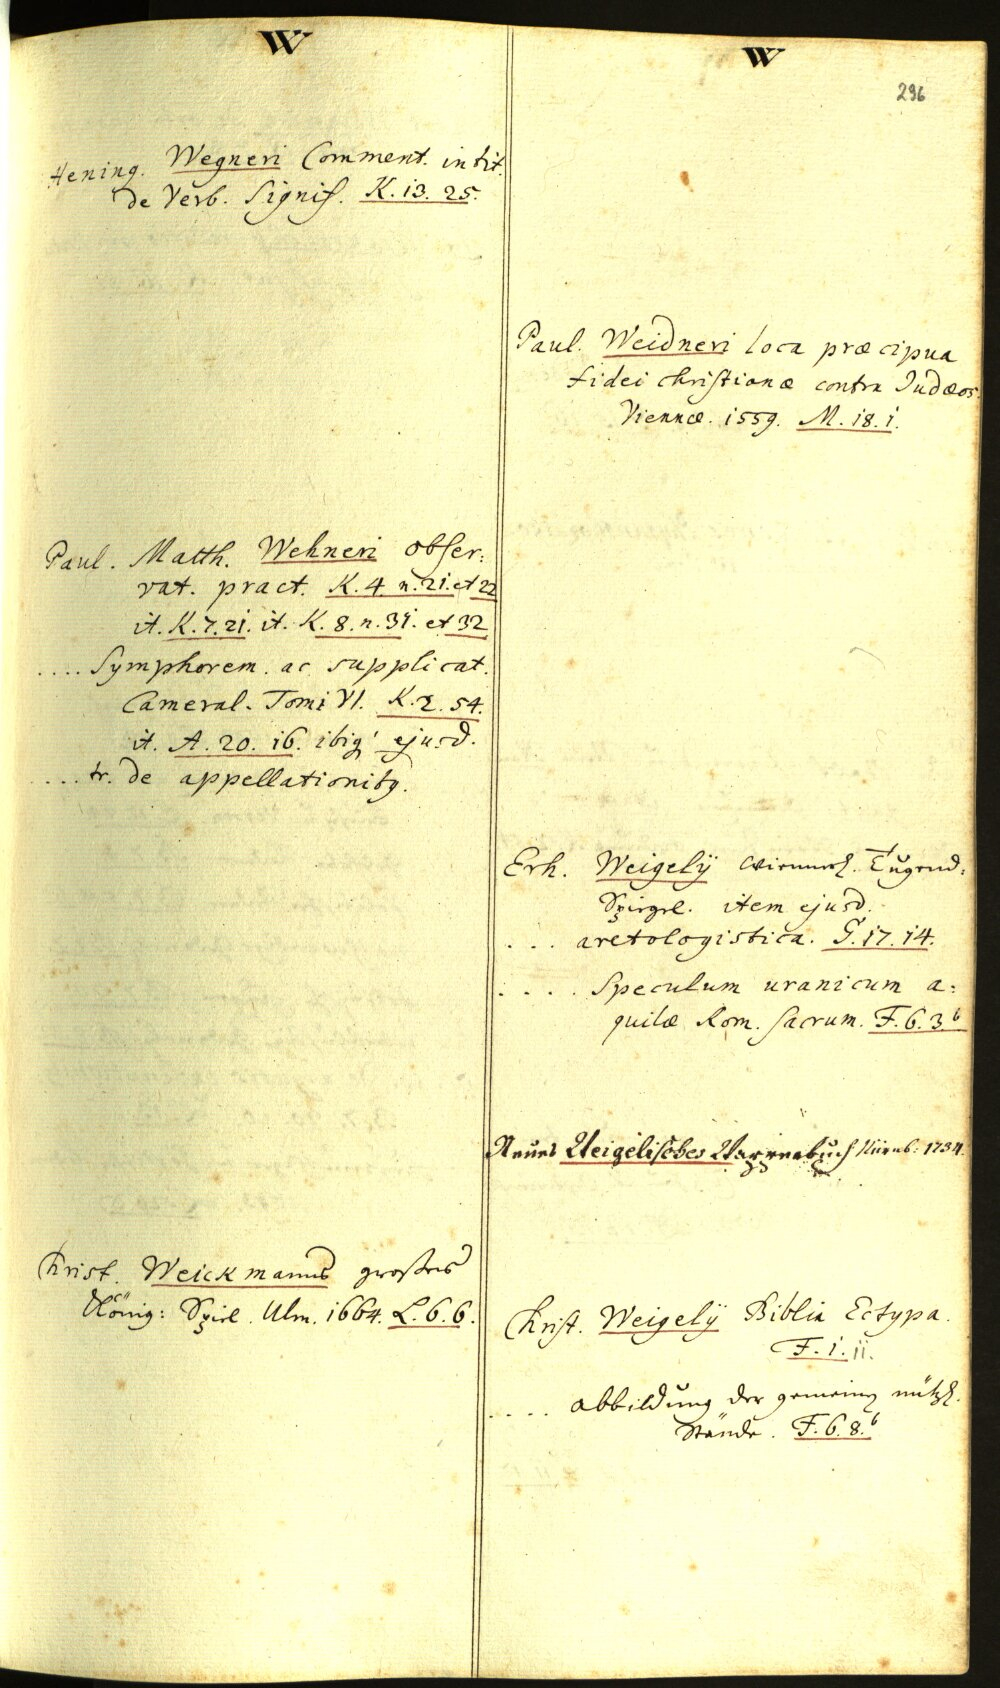 W
Hening. Wegneri Comment. in tit.
de Verb. Signif. K. 13. 25.
Paul. Matth. Wehneri obser:
vat. pract. K. 4 n. 21. et 22
it. K. 7. 21. it. K. 8. n. 31. et 32
.... Symphorem. ac supplicat.
Cameral. Tomi VI. K. 2. 54.
it. A. 20. 16. ibiq' ejusd.
.... tr. de appellationibq.
Christ. Weickmanns großes
König: Spiel. Ulm. 1664. L. 6. 6.
W
296
Paul. Weidneri loca præcipua
fidei christianæ contra Judæos.
Viennæ. 1559. M. 18. 1.
Erh. Weigelÿ Tugend:
Spiegel. item ejusd.
... aretologistica. G. 17. 14.
.... Speculum uranicum a:
quilæ Rom. sacrum. F. 6. 3.b
Neues Weigelisches Nürnb: 1734.
Christ. Weigelÿ Biblia Ectypa.
F. 1. 11.
.... abbildung der gemein nützl.
Stände. F. 6. 8.b